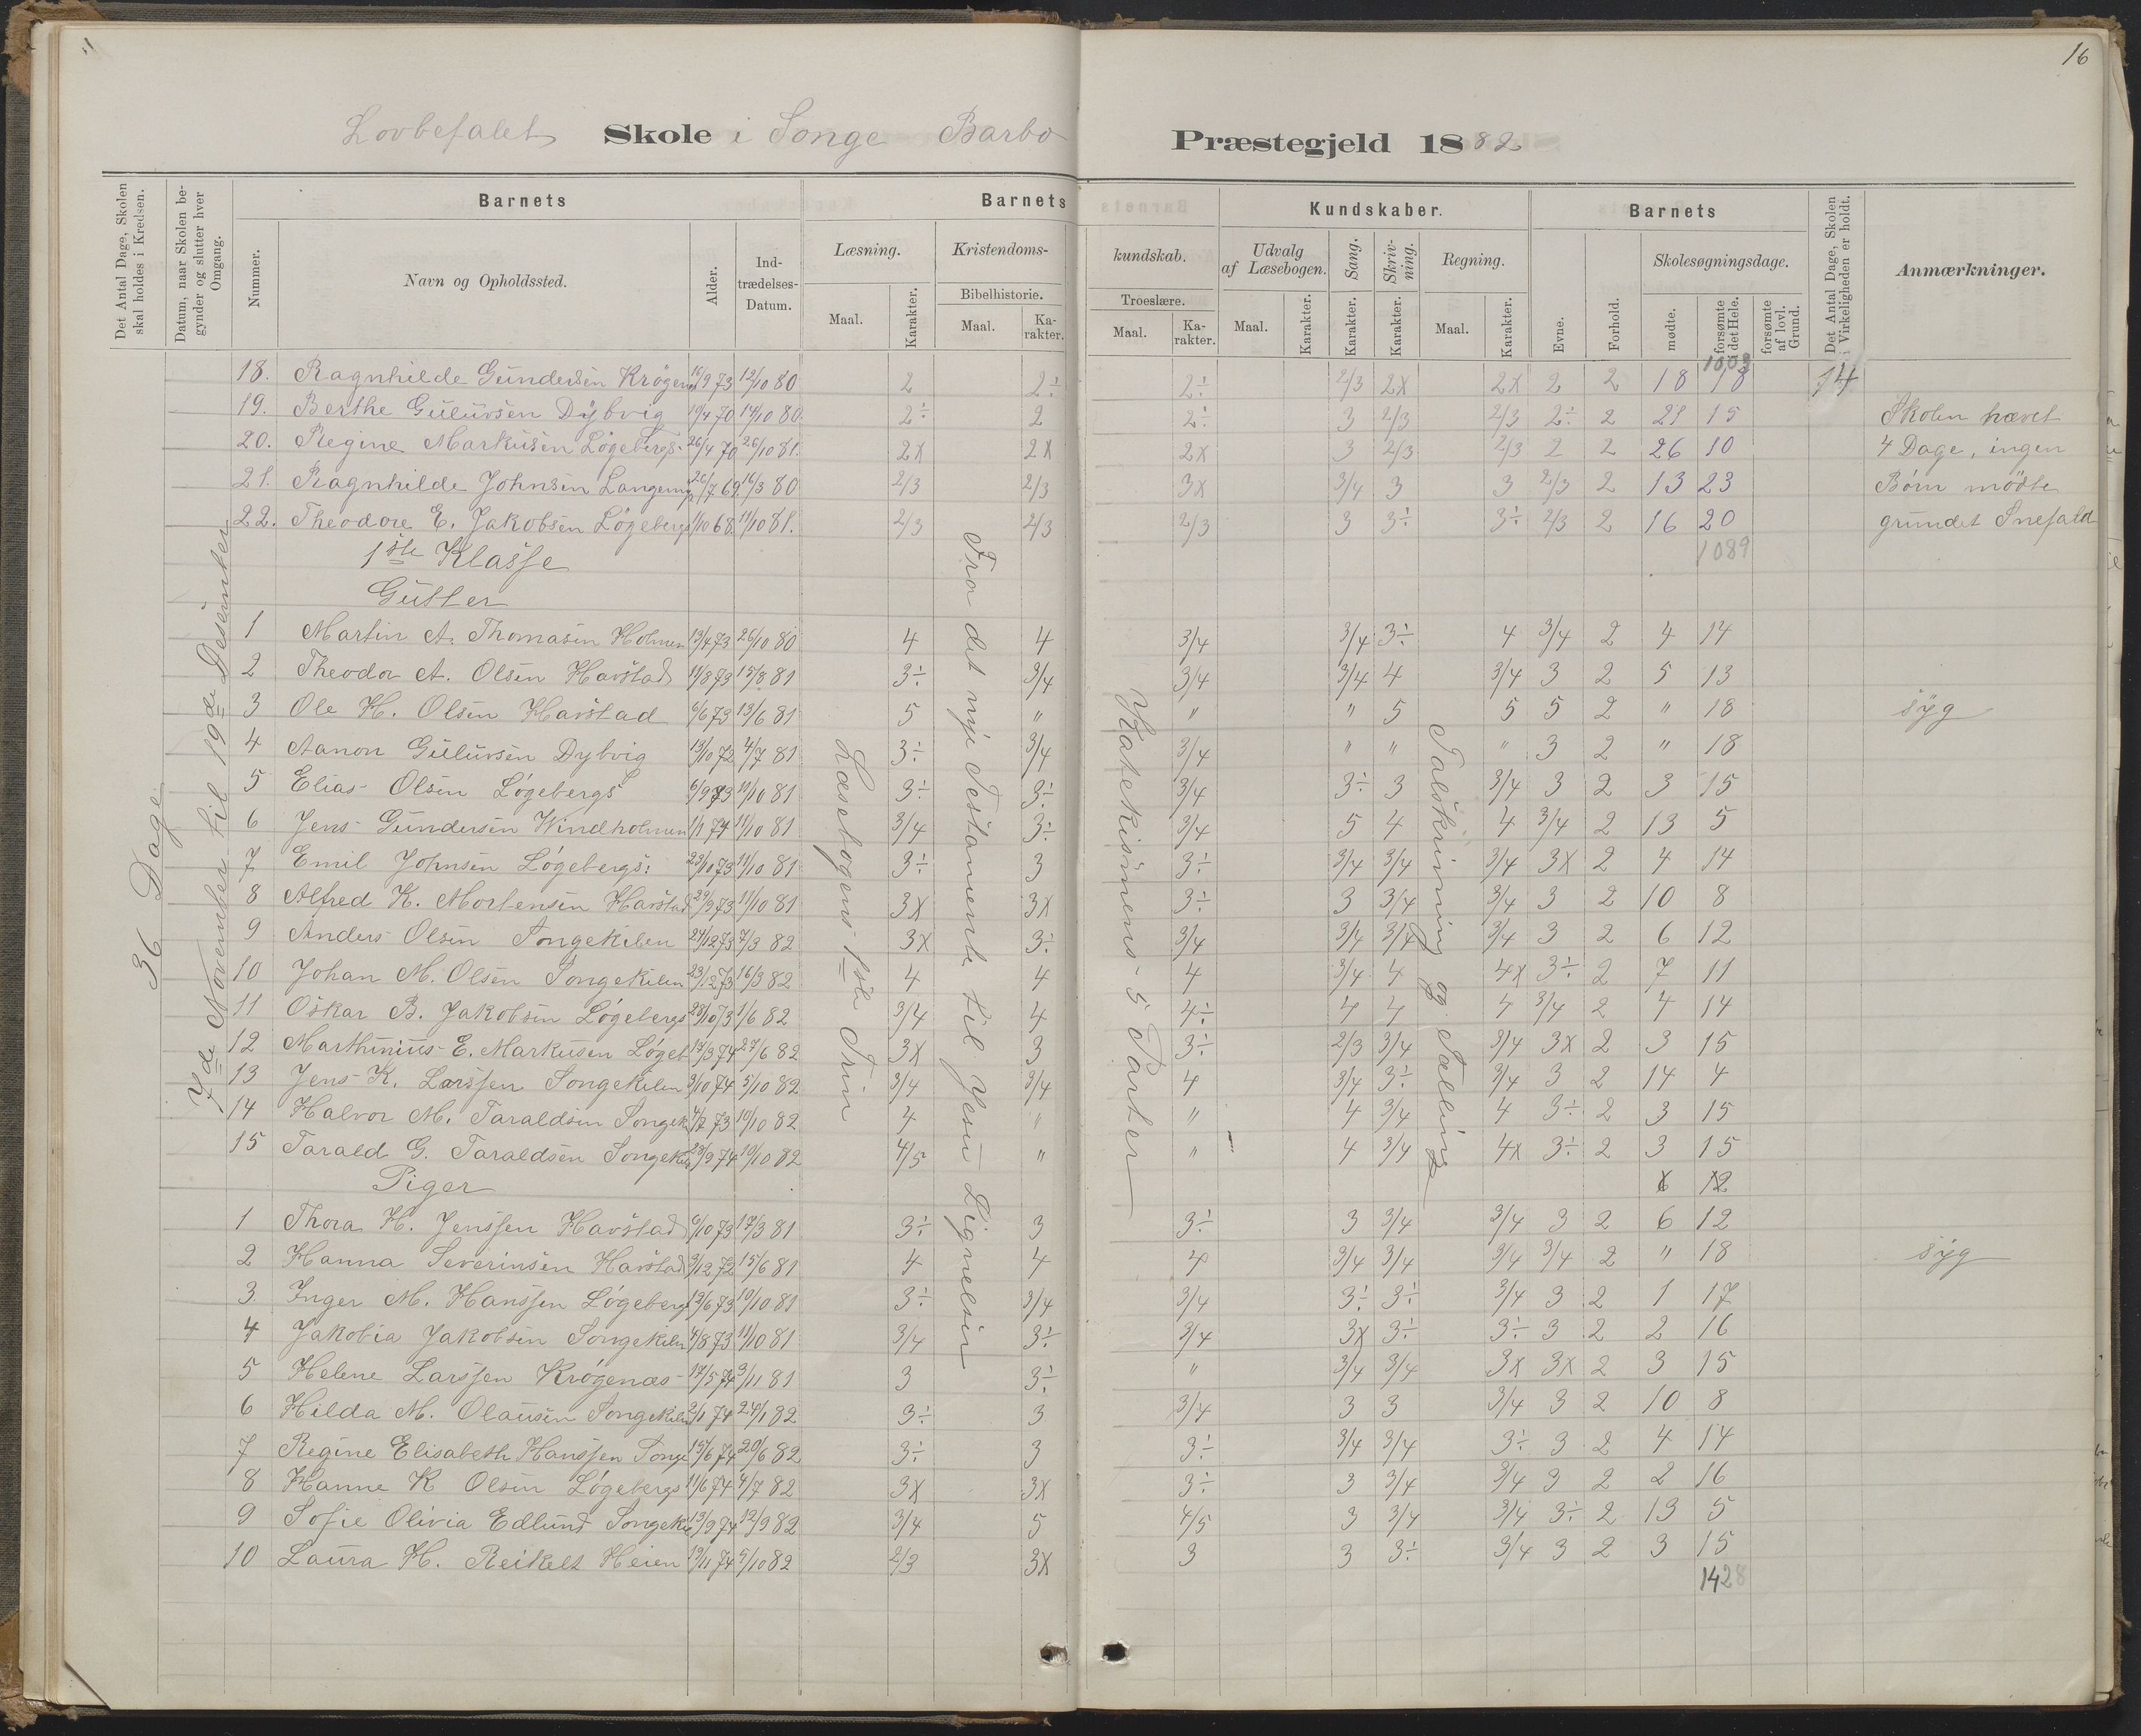 16
Lovbefalet Skole i Songe Barbo Præstegjeld 1882
Det Antal Dage, Skolen skal holdes i Kredsen.
Datum, naar Skolen begynder og slutter hver Omgang.
Barnets
Barnets Kundskaber.
Barnets
Det Antal Dage, Skolen i Virkeligheden er holdt.
Anmærkninger.
Nummer. Navn og Opholdssted. Alder. Indtrædelses-Datum.
Læsning. Kristendomskundskab. Udvalg af Læsebogen. Sang. Skrivning. Regning. Evne. Forhold. Skolesøgningsdage.
Bibelhistorie. Troeslære.
Maal. Karakter. Maal. Karakter. Maal. Karakter. Maal. Karakter. Karakter. Karakter. Maal. Karakter. mødte. forsømte i det Hele. forsømte af lovl. Grund.
1003
18. Ragnhilde Gundersen Krøgenæs 16/9 73 12/10 80 2 2÷ 2÷ 2/3 2x 2x 2 2 18 18 14
19. Berthe Guluvsen Dybvig 10/4 70 14/10 80 2÷ 2 2÷ 3 2/3 2/3 2÷ 2 21 15 Skolen hævet
20. Regine Markusen Løgebergs 26/4 70 26/10 81. 2x 2x 2x 3 2/3 2/3 2 2 26 10 4 Dage, ingen
21. Ragnhilde Johnsen 26/7 69 16/3 80 2/3 2/3 3x 3/4 3 3 2/3 2 13 23 Børn mødte
22. Theodore E. Jakobsen Løgebergs 1/10 68 11/10 81. 2/3 2/3 2/3 3 3÷ 3÷ 2/3 2 16 20 grundet Snefald
1089
1ste Klasse
Gutter
36 Dage
7de November til 19de Desember
Læsebogens 1ste Trin
Fra det nye Testamente til Jesu Lignelser
Katekismens 5 Parter
Talskrivning og Tælling
1 Martin A. Thomasen Holmen 13/4 73 26/10 80 4 4 3/4 3/4 3÷ 4 3/4 2 4 14
2 Theodor A. Olsen Havstad 11/8 73 15/8 81 3÷ 3/4 3/4 3/4 4 3/4 3 2 5 13
3 Ole H. Olsen Havstad 6/6 73 13/6 81 5 " " " 5 5 5 2 " 18 syg
4 Aanon Guluvsen Dybvig 13/10 72 4/7 81 3÷ 3/4 3/4 " " " 3 2 " 18
5 Elias Olsen Løgebergs 6/9 73 11/10 81 3÷ 3÷ 3/4 3÷ 3 3/4 3 2 3 15
6 Jens Gundersen Windholmen 1/1 74 11/10 81 3/4 3÷ 3/4 5 4 4 3/4 2 13 5
7 Emil Johnsen Løgebergs: 23/10 73 11/10 81 3÷ 3 3÷ 3/4 3/4 3/4 3x 2 4 14
8 Alfred K. Mortensen Havstad 29/9 73 11/10 81 3x 3x 3÷ 3 3/4 3/4 3 2 10 8
9 Anders Olsen Songekilen 24/12 73 7/3 82 3x 3÷ 3/4 3/4 3/4 3/4 3 2 6 12
10 Johan M. Olsen Songekilen 23/12 73 16/3 82 4 4 4 3/4 4 4x 3÷ 2 7 11
11 Oskar B. Jakobsen Løgebergs 23/10 73 1/6 82 3/4 4 4÷ 4 4 4 3/4 2 4 14
12 Marthinius E. Markusen Løgeb 17/3 74 27/6 82 3x 3 3÷ 2/3 3/4 3/4 3x 2 3 15
13 Jens K. Larssen Songekilen 3/10 74 5/10 82 3/4 3/4 4 3/4 3÷ 3/4 3 2 14 4
14 Halvor M. Taraldsen Songek 73 10/10 82 4 " " 4 3/4 4 3÷ 2 3 15
15 Tarald G. Taraldsen Songekil 29/9 74 10/10 82 4/5 " " 4 3/4 4x 3÷ 2 3 15
Piger 6 12
1 Thora H. Jenssen Havstad 6/10 73 17/3 81 3÷ 3 3÷ 3 3/4 3/4 3 2 6 12
2 Hanna Severinsen Havstad 9/12 72 15/6 81 4 4 4 3/4 3/4 3/4 3/4 2 " 18 syg
3 Inger M. Hanssen Løgebergs 13/6 73 10/10 81 3÷ 3/4 3/4 3÷ 3÷ 3/4 3 2 1 17
4 Jakobia Jakobsen Songekilen 4/8 73 11/10 81 3/4 3÷ 3/4 3x 3÷ 3÷ 3 2 2 16
5 Helene Larssen Krøgenæs 17/5 74 3/11 81 3 3÷ " 3/4 3/4 3x 3x 2 3 15
6 Hilda M. Olausen Songekilen 2/1 74 24/1 82 3÷ 3 3/4 3 3 3/4 3 2 10 8
7 Regine Elisabeth Hanssen Songe 15/6 74 20/6 82 3÷ 3 3÷ 3/4 3/4 3÷ 3 2 4 14
8 Hanne K Olsen Løgebergs 11/6 74 4/7 82 3x 3x 3÷ 3 3/4 3/4 3 2 2 16
9 Sofie Olivia Edlund Songekil 13/9 74 12/9 82 3/4 5 4/5 3 3/4 3/4 3÷ 2 13 5
10 Laura H. Reikelt Heien 13/11 74 5/10 82 2/3 3x 3 3 3÷ 3/4 3 2 3 15
1428